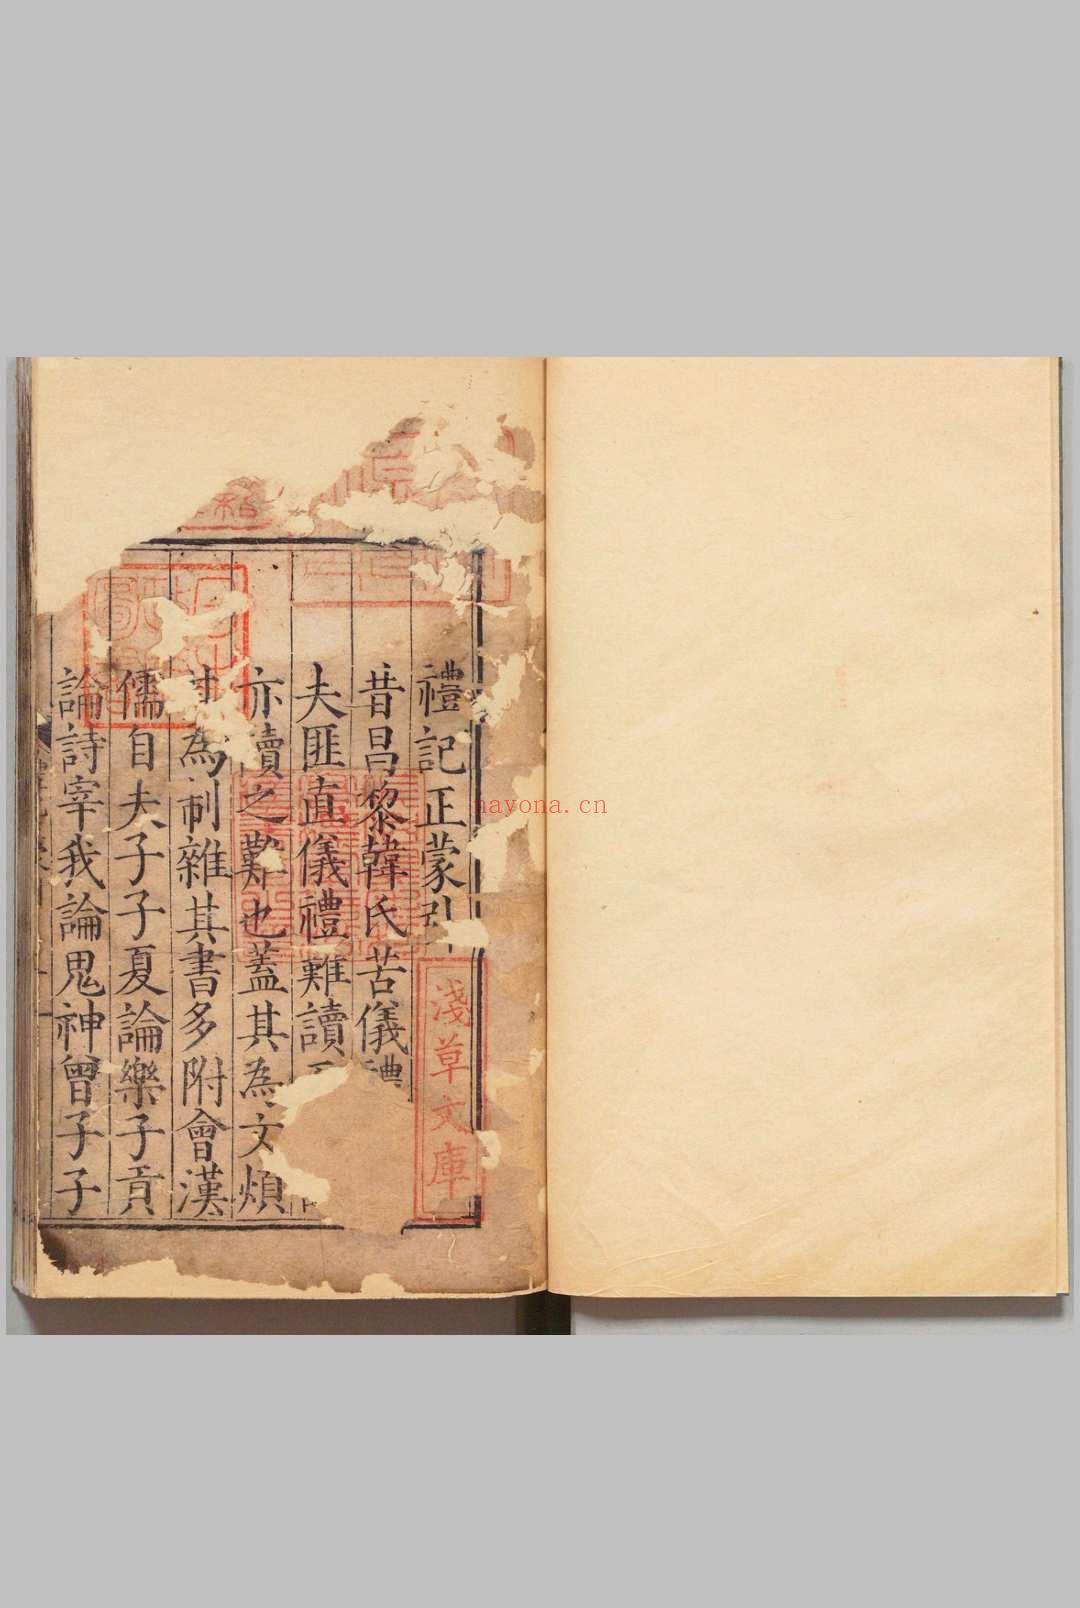 禮記正蒙引
昔昌黎韓氏苦儀禮
夫匪直儀禮難讀
亦讀之難也蓋其為文煩
為制雜其書多附會漢
儒自夫子子夏論樂子貢
論詩宰我論鬼神曾子子
淺草文庫
nayona.cn